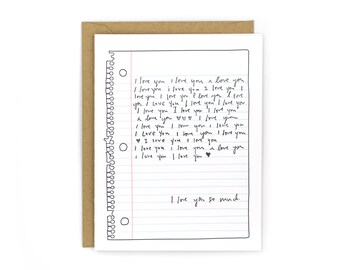 I love you I love you I love you
I love you I love you I love you I
love you I love you I love you I love
you I love you I love you I love
you I love you I love you
I love you ♥♥♥ I love you
I love you I love you I love you
I love you I love you I love you
♥ I love you I love you
I love you I love you I love you
I love you I love you ♥
I love you so much